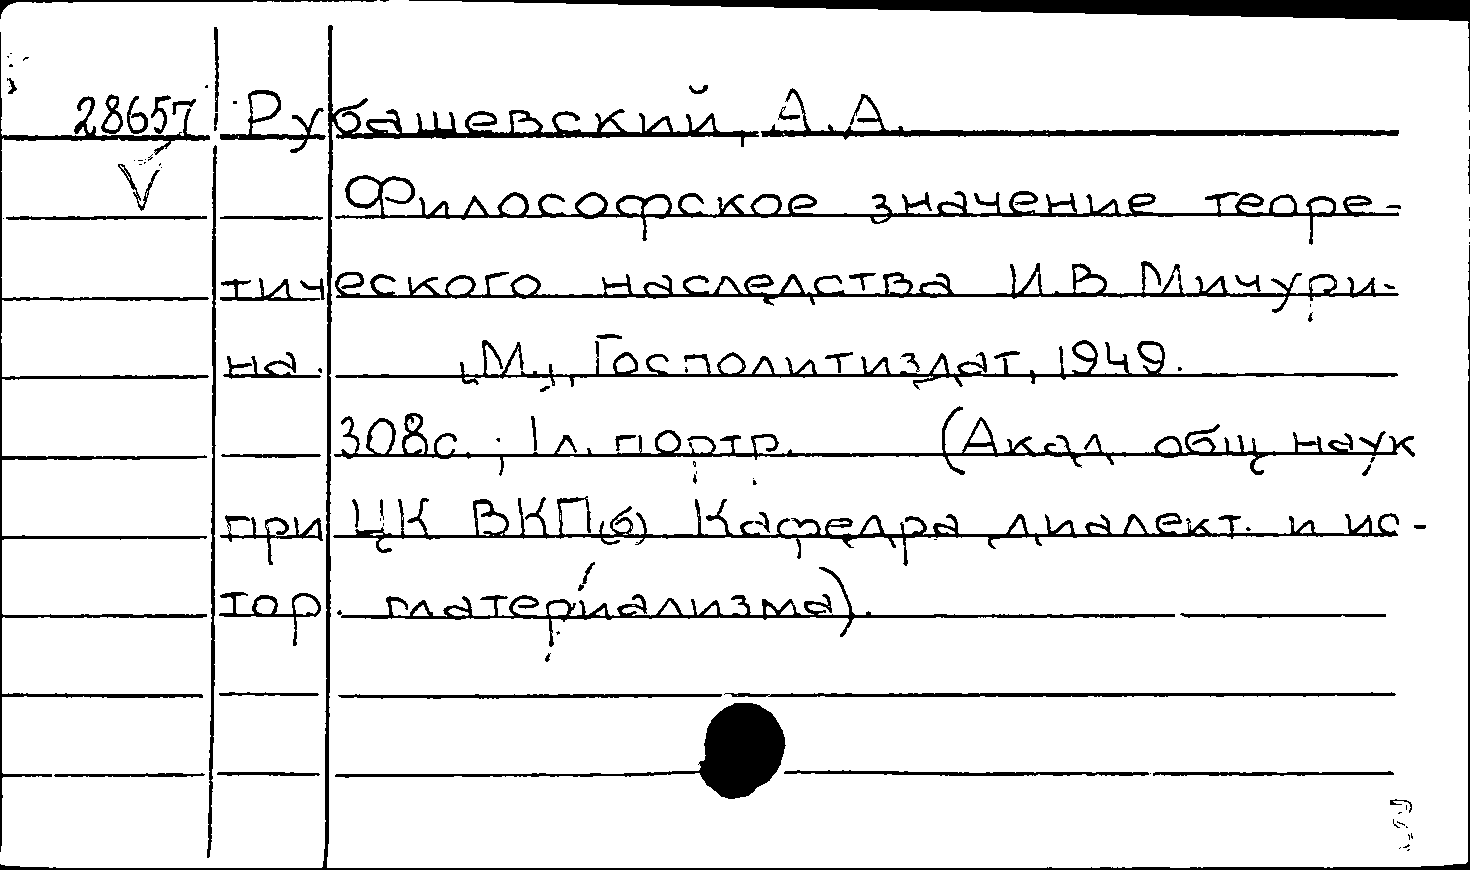 28657 Рубашевский, А.А.
V Философское значение теоре-
тического наследства И.В Мичури-
на. „М.“, Госполитиздат, 1949.
308с.; 1л. портр. (Акад. общ. наук
при ЦК ВКП(б) Кафедра диалект. и ис-
тор. материализма).